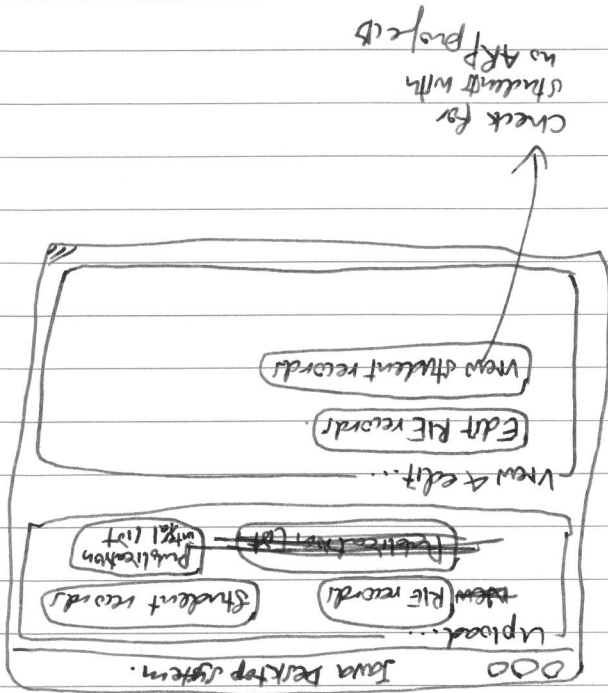 Java Desktop system.
Upload...
New RIE records
Student records
Publication List
Publication
intgal list
View & edit...
Edit RIE records
View student records
Check for
student with
no ARP
projects